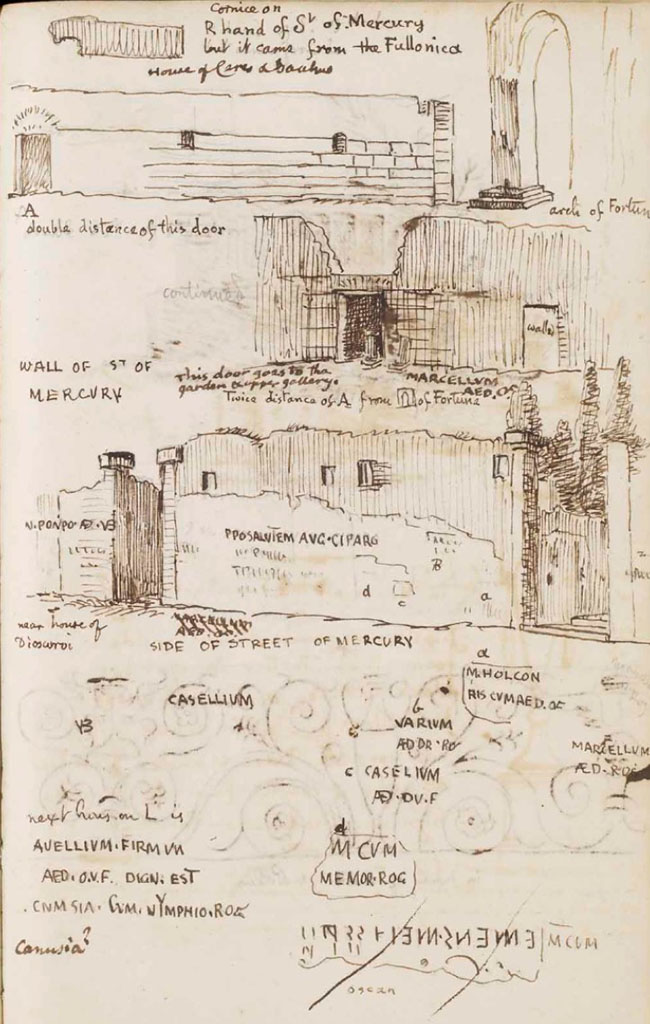 Cornice on
R hand of St of Mercury
but it came from the Fullonica
House of Ceres & Bacchus
arch of Fortun
A
double distance of this door
continues
walled
WALL OF ST OF
MERCURY
This door goes to the
garden & upper gallery.
MARCELLUM
AED. OF
Twice distance of A from of Fortuna
N. PONPO Æ VB
PPOSALUTEM AVG. CIPARG
B
d
c
a
near house of
Dioscuroi
SIDE OF STREET OF MERCURY
a
M. HOLCON
RISCUM AED. OF
CASELLIUM
VB
b
VARIUM
ÆD DR. RO
MARCELLUM
ÆD. ROG
c CASELIUM
ÆD. DU. F
next house on L is
AUELLIUM. FIRMUM
AED. O.V.F. DIGN. EST
. CNMSIA. CUM. NYMPHIO. ROG
Canusia?
d
M CUM
MEMOR. ROG
M CUM
oscan